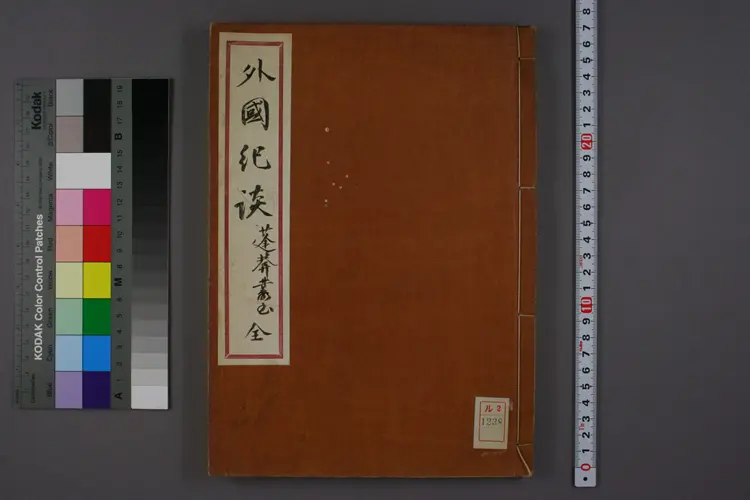 外國紀談
蓬莽叢書
全
ル2
1238
KODAK Color Control Patches
Kodak
Blue
Cyan
Green
Yellow
Red
Magenta
White
3/Color
Black
A 1 2 3 4 5 6 M 8 9 10 11 12 13 14 15 B 17 18 19
0 1 2 3 4 5 6 7 8 9 10 1 2 3 4 5 6 7 8 9 20 1 2 3 4 5 6 7 8